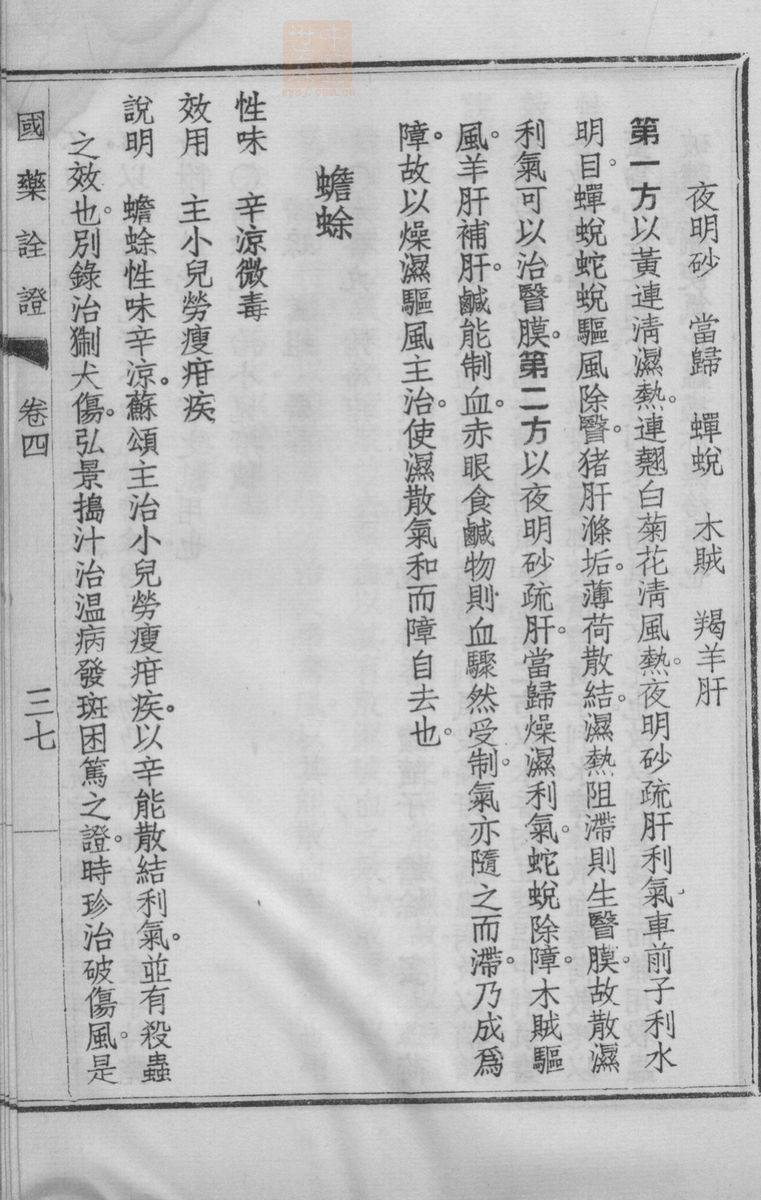 夜明砂　當歸　蟬蛻　木賊　羯羊肝
第一方以黃連清濕熱。連翹白菊花清風熱。夜明砂疏肝利氣車前子利水
明目。蟬蛻蛇蛻驅風除瞖。猪肝滌垢。薄荷散結。濕熱阻滯則生瞖膜。故散濕
利氣可以治瞖膜。第二方以夜明砂疏肝。當歸燥濕利氣。蛇蛻除障。木賊驅
風。羊肝補肝。鹹能制血。赤眼食鹹物則血驟然受制。氣亦隨之而滯。乃成爲
障。故以燥濕驅風主治。使濕散氣和而障自去也。
蟾蜍
性味　辛涼微毒
效用　主小兒勞瘦疳疾
說明　蟾蜍性味辛涼。蘇頌主治小兒勞瘦疳疾。以辛能散結利氣。並有殺蟲
之效也。別錄治猘犬傷。弘景搗汁治温病發斑困篤之證。時珍治破傷風。是
國藥詮證　卷四　三七